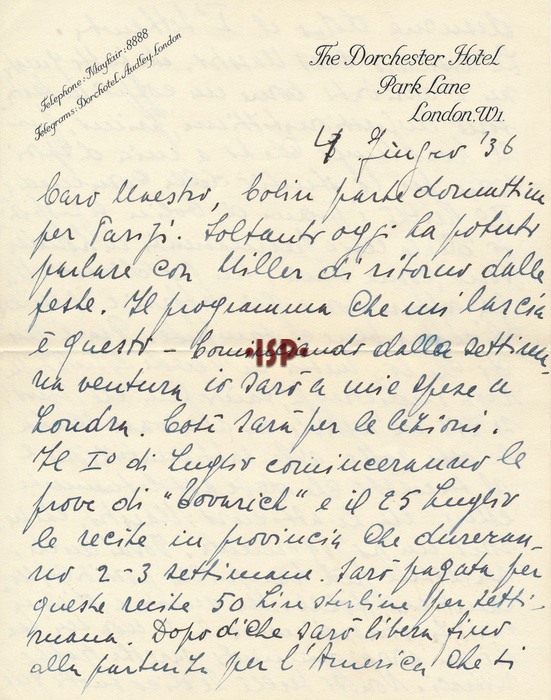 Telephone: Mayfair: 8888
Telegrams: Dorchotel, Audley, London
The Dorchester Hotel
Park Lane
London, W1.
4 Giugno '36
Caro Maestro, Colin parte domattina
per Parigi. Soltanto oggi ha potuto
parlare con Miller di ritorno dalle
feste. Il programma che mi lascia
è questo – Cominciando dalla settima=
na ventura io sarò a mie spese a
Londra. Così sarà per le lezioni.
Il Iº di Luglio cominceranno le
prove di "Tovarich" e il 25 Luglio
le recite in provincia che dureran-
no 2-3 settimane. Sarò pagata per
queste recite 50 Lire sterline per setti-
mana. Dopodiche sarò libera fino
alla partenza per l'America che si
ISP